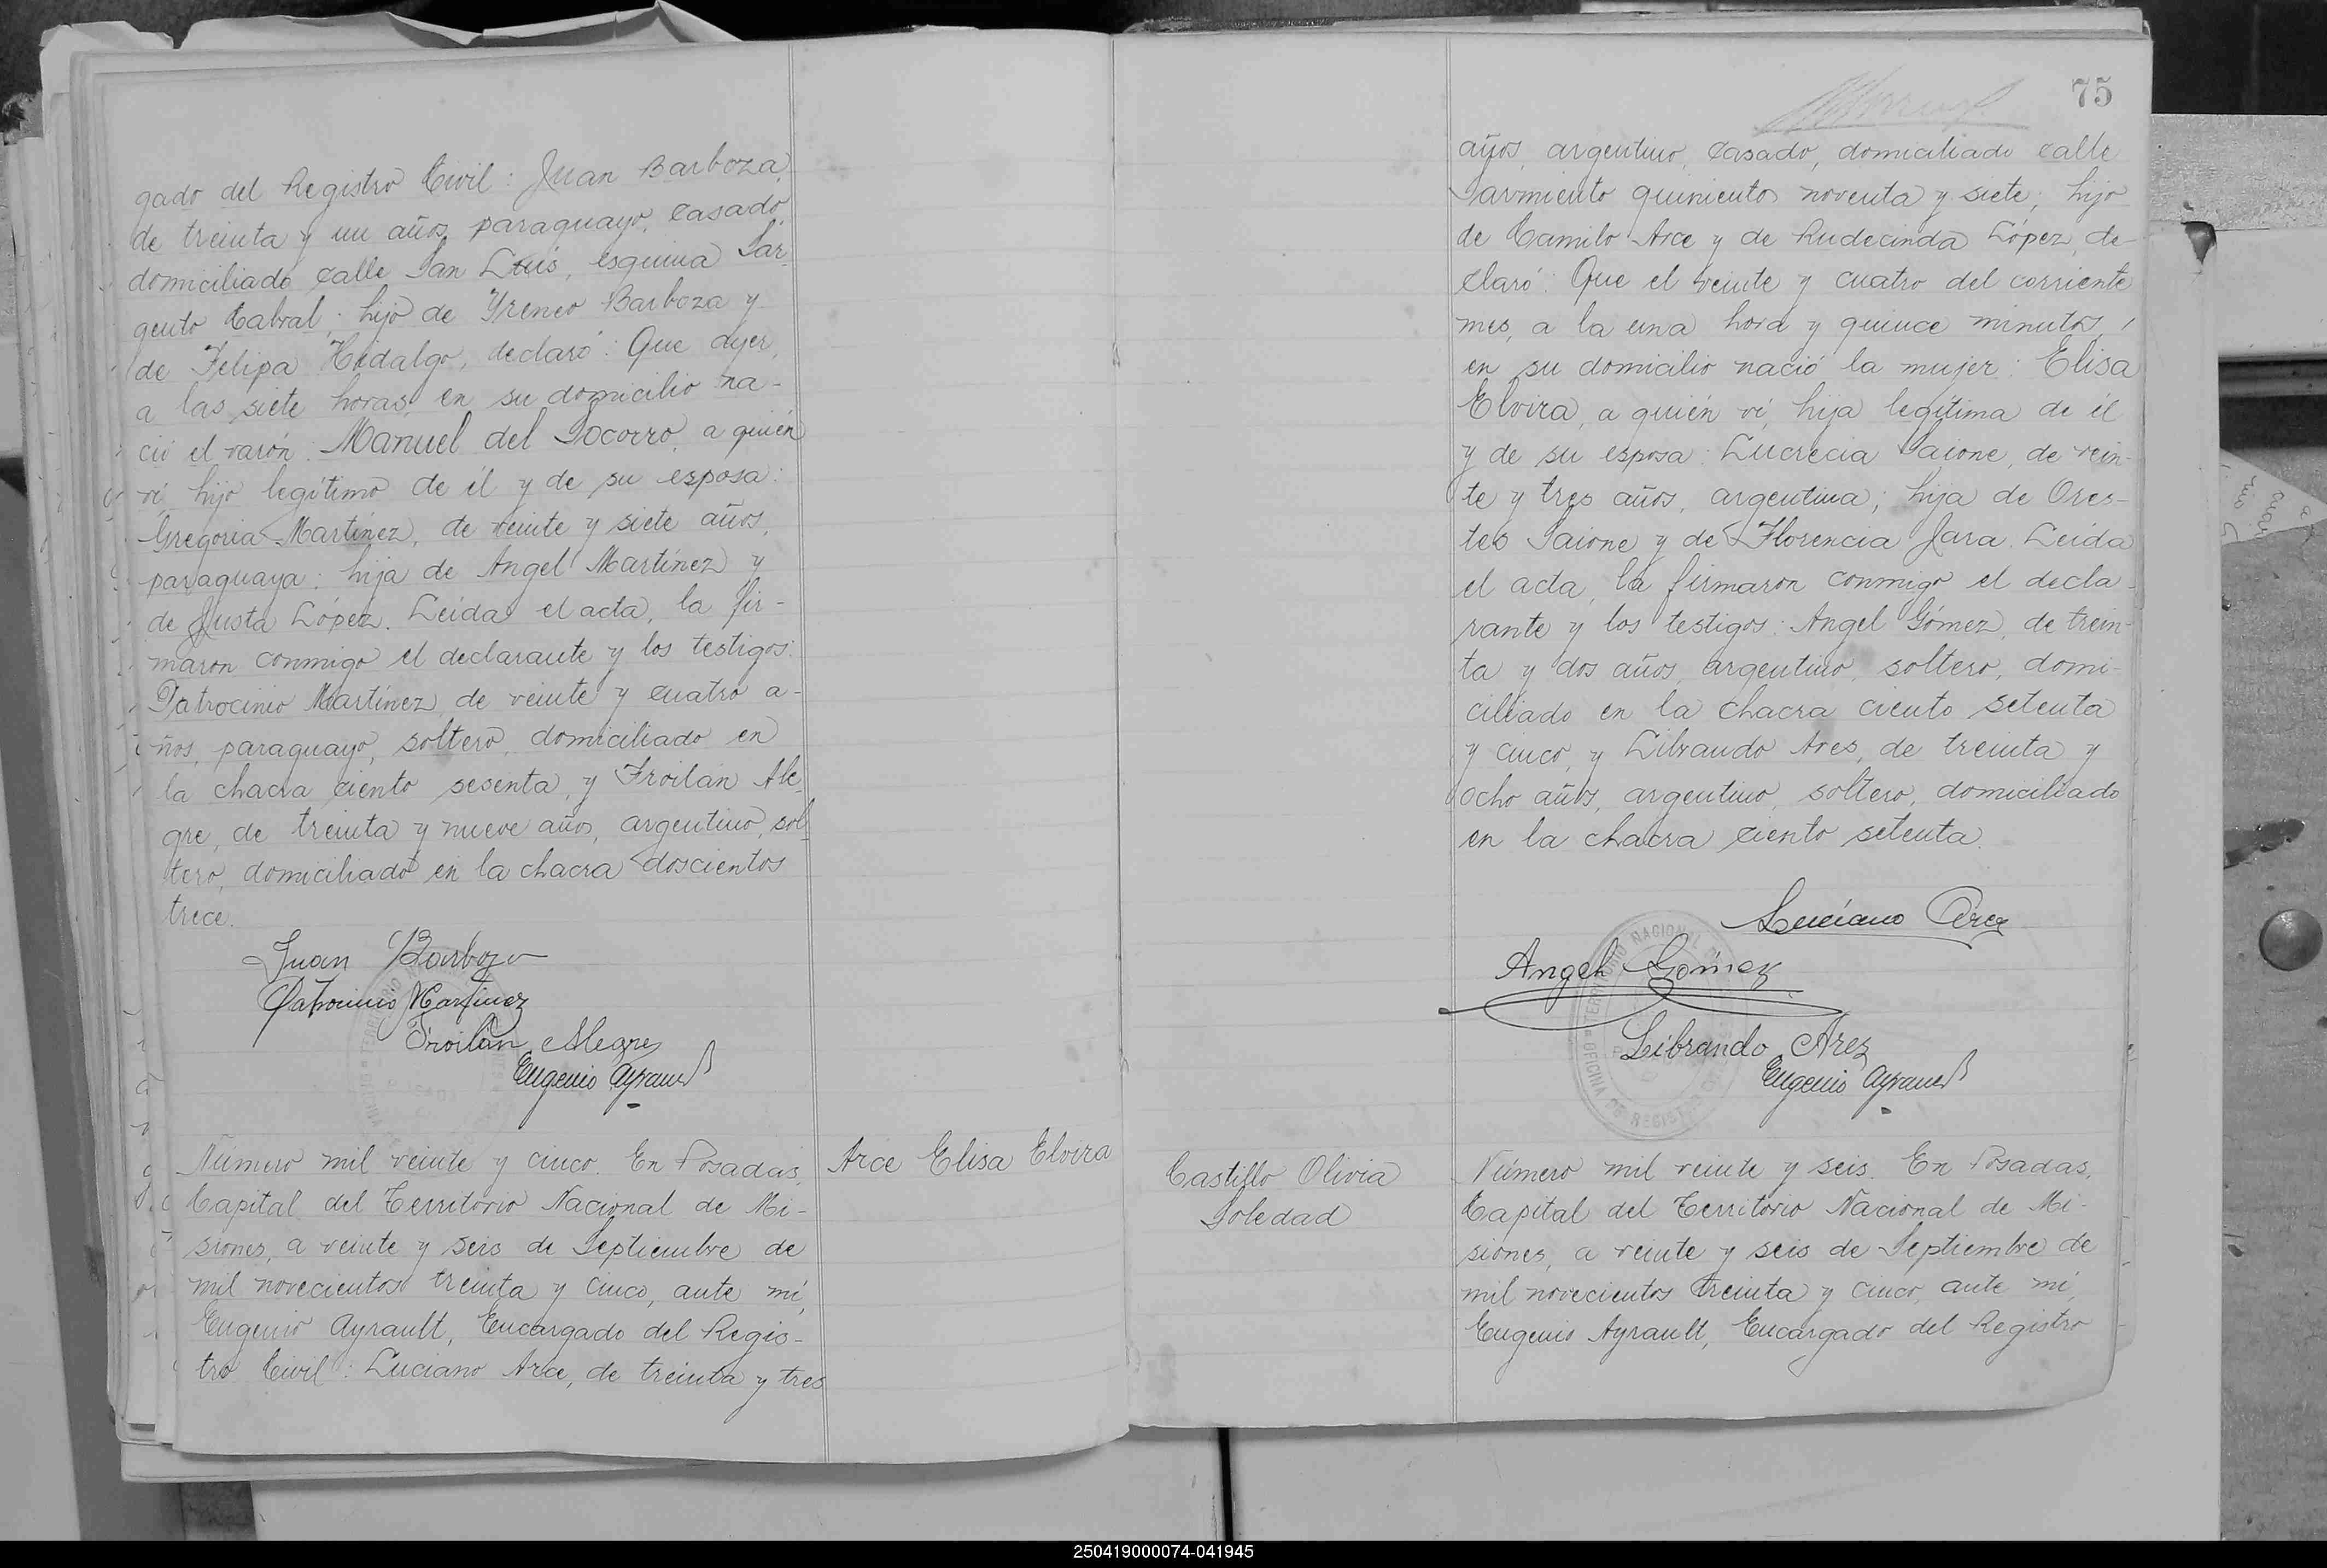 gado del Registro Civil: Juan Barboza,
de treinta y un años, paraguayo, casado,
domiciliado calle San Luis, esquina Sar-
gento Cabral; hijo de Yreneo Barboza y
de Felipa Hidalgo, declaró: Que ayer,
a las siete horas, en su domicilio na-
ció el varón: Manuel del Socorro, a quién
ví, hijo legítimo de él y de su esposa:
Gregoria Martínez, de veinte y siete años,
paraguaya; hija de Angel Martínez y
de Justa López. Leída el acta, la fir-
maron conmigo el declarante y los testigos:
Patrocinio Martínez, de veinte y cuatro a-
ños, paraguayo, soltero, domiciliado en
la chacra ciento sesenta, y Froilán Ale-
gre, de treinta y nueve años, argentino, sol-
tero, domiciliado en la chacra doscientos
trece.
Juan Barboza
Patrocinio Martinez
Froilán Alegre
Eugenio Ayrault
Número mil veinte y cinco. En Posadas,
Capital del Territorio Nacional de Mi-
siones, a veinte y seis de Septiembre de
mil novecientos treinta y cinco, ante mí,
Eugenio Ayrault, Encargado del Regis-
tro Civil: Luciano Arce, de treinta y tres
Arce Elisa Elvira
75
años, argentino, casado, domiciliado calle
Sarmiento quinientos noventa y siete; hijo
de Camilo Arce y de Rudecinda López, de-
claró: Que el veinte y cuatro del corriente
mes, a la una hora y quince minutos,
en su domicilio nació la mujer: Elisa
Elvira, a quién ví, hija legítima de él
y de su esposa: Lucrecia Saione, de vein-
te y tres años, argentina; hija de Ores-
tes Saione y de Florencia Jara. Leída
el acta, la firmaron conmigo el decla-
rante y los testigos: Angel Gómez, de trein-
ta y dos años, argentino, soltero, domi-
ciliado en la chacra ciento setenta
y cinco, y Librando Ares, de treinta y
ocho años, argentino, soltero, domiciliado
en la chacra ciento setenta.
Luciano Arce
Angel Gómez
Librando Arez
Eugenio Ayrault
Castillo Olivia
Soledad
Número mil veinte y seis. En Posadas,
Capital del Territorio Nacional de Mi-
siones, a veinte y seis de Septiembre de
mil novecientos treinta y cinco, ante mí,
Eugenio Ayrault, Encargado del Registro
250419000074-041945